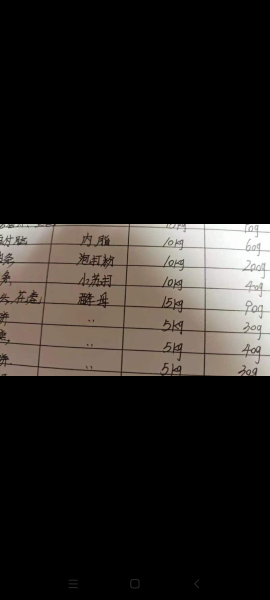 10g
内脂 10kg 60g
泡打粉 10kg 200g
小苏打 10kg 40g
花卷, 酵母 15kg 90g
饼 〃 5kg 30g
〃 5kg 40g
饼 〃 5kg 30g